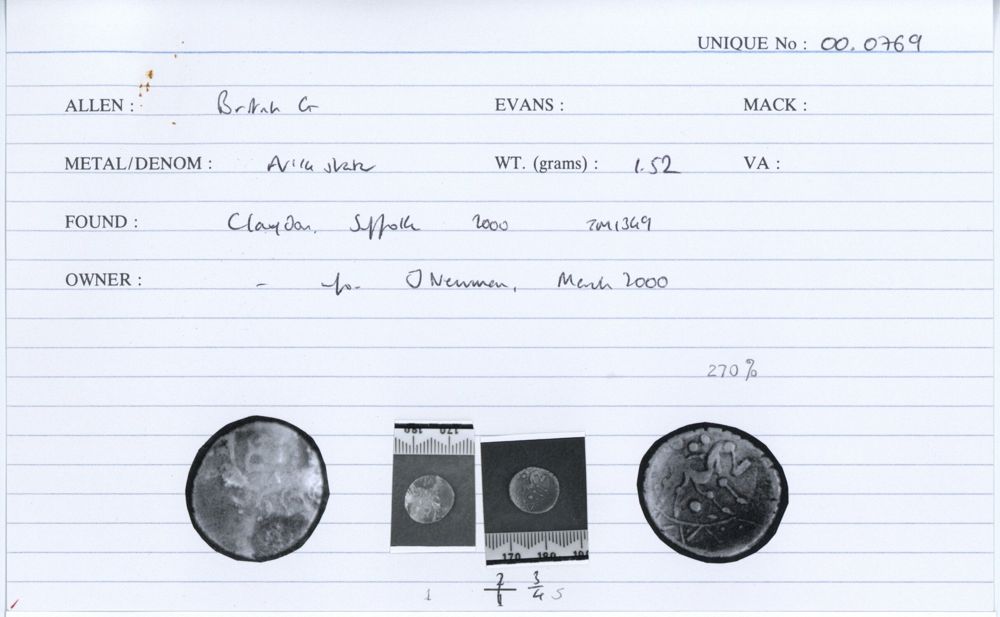 UNIQUE No : 00.0769
ALLEN : British G EVANS : MACK :
METAL/DENOM : AV 1/4 stater WT. (grams) : 1.52 VA :
FOUND : Claydon, Suffolk 2000 TM1349
OWNER : - J Newman, March 2000
270%
180 170
170 180 190
1 2 3 5
1 4